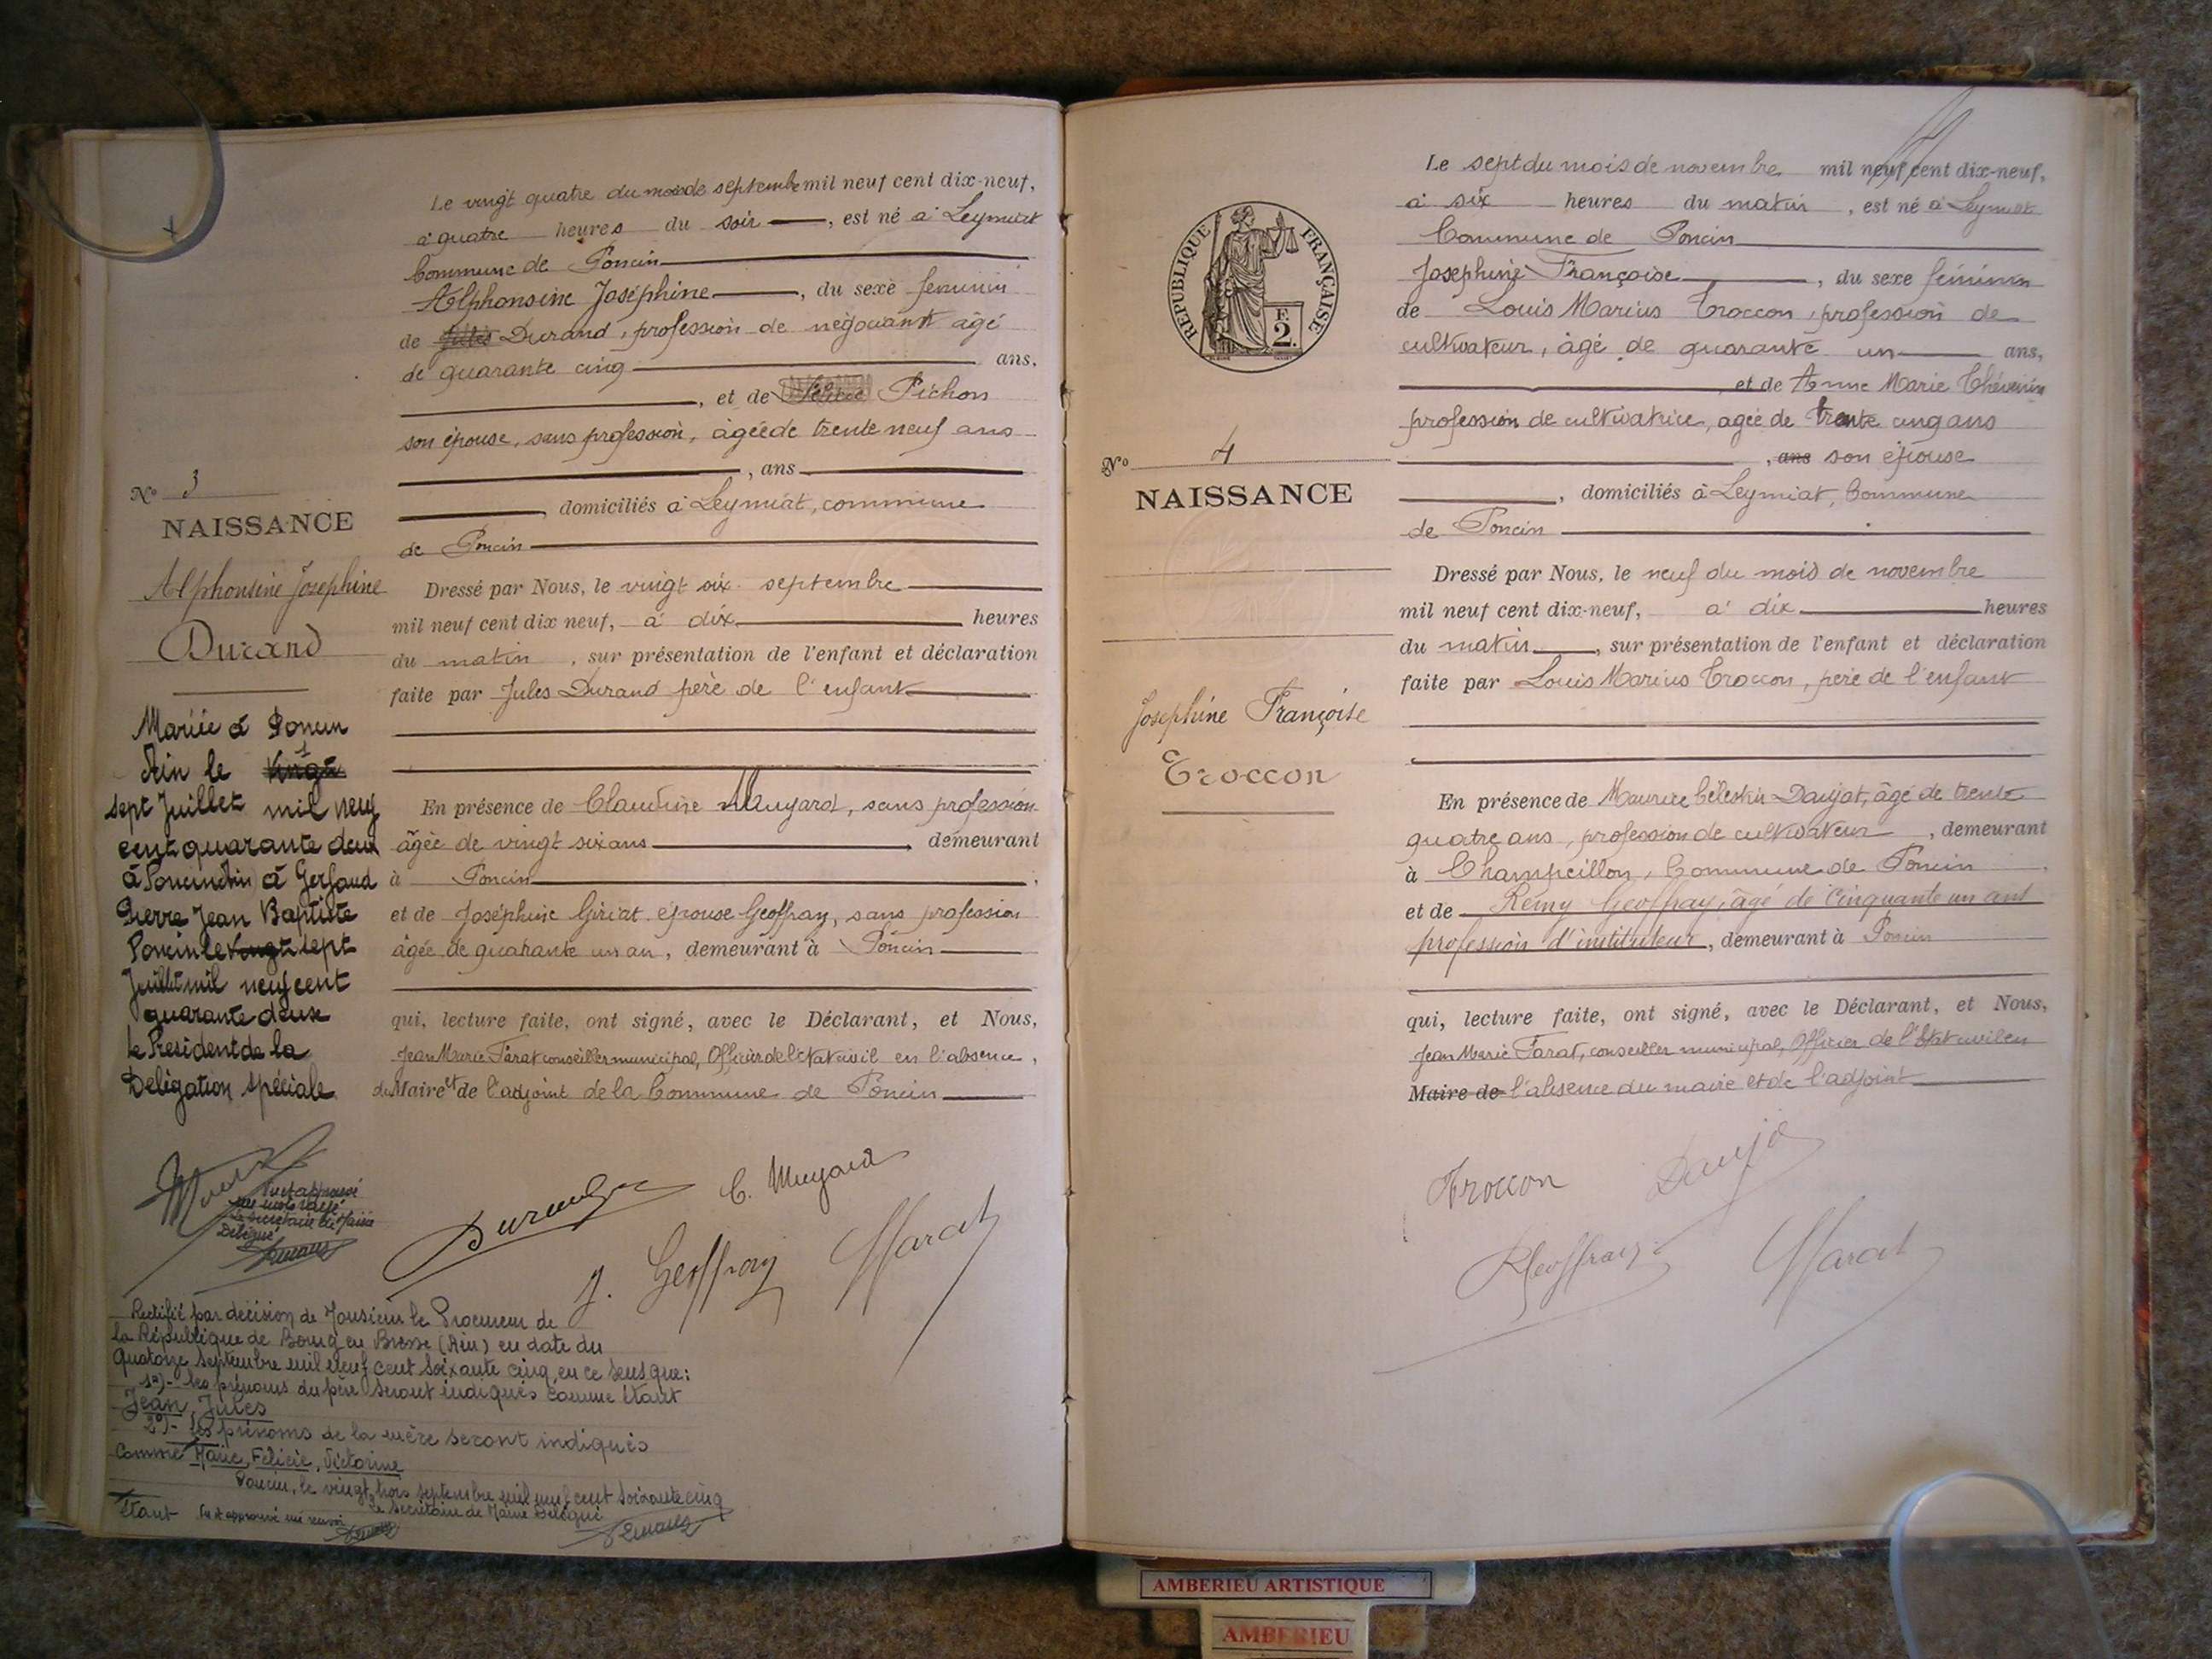 Le vingt quatre du mois de septembre mil neuf cent dix-neuf,
à quatre heures du soir, est né à Leymiat
Commune de Poncin
Alphonsine Joséphine, du sexe féminin
de Jules Durand, profession de négociant âgé
de quarante cinq ans.
, et de Pichon
son épouse, sans profession, âgée de trente neuf ans
, ans
domiciliés à Leymiat, commune
de Poncin
Nº 3
NAISSANCE
Alphonsine Josephine
Durand
Dressé par Nous, le vingt six septembre
mil neuf cent dix neuf, à dix heures
du matin, sur présentation de l'enfant et déclaration
faite par Jules Durand père de l'enfant
En présence de Claudine Muyard, sans profession
âgée de vingt six ans demeurant
à Poncin.
et de Joséphine Giriat épouse Geoffray, sans profession
âgée de quarante un an, demeurant à Poncin
qui, lecture faite, ont signé, avec le Déclarant, et Nous,
Jean Marie Farat conseiller municipal, Officier de l'Etat civil en l'absence,
du Maire et de l'adjoint de la Commune de Poncin
Mariée à Poncin
Ain le vingt
sept Juillet mil neuf
cent quarante deux
à Poncin (Ain) à Gerfaud
Pierre Jean Baptiste
Poncin le vingt sept
Juillet mil neuf cent
quarante deux
le Président de la
Délégation spéciale
Lu et approuvé
un mots rayé
Le secrétaire de Mairie
Délégué
C. Muyard
J. Geoffray
Farat
Rectifié par décision de Monsieur le Procureur de
la République de Bourg en Bresse (Ain) en date du
quatorze septembre mil neuf cent soixante cinq, en ce sens que:
1º)- les prénoms du père seront indiqués comme étant
Jean, Jules
2º)- les prénoms de la mère seront indiqués
comme Marie, Félicie, Victorine
Poncin, le vingt trois septembre mil neuf cent soixante cinq
Le secrétaire de Mairie Délégué
étant Lu et approuvé un renvoi
Le sept du mois de novembre mil neuf cent dix-neuf,
à six heures du matin, est né à Leymiat
Commune de Poncin
Josephine Françoise, du sexe féminin
de Louis Marius Troccon, profession de
cultivateur, âgé de quarante un ans,
et de Anne Marie Thévenin
profession de cultivatrice, agée de trente cinq ans
, ans son épouse
, domiciliés à Leymiat, Commune
de Poncin
RÉPUBLIQUE FRANÇAISE
E
2.
Nº 4
NAISSANCE
Josephine Françoise
Troccon
Dressé par Nous, le neuf du mois de novembre
mil neuf cent dix-neuf, à dix heures
du matin, sur présentation de l'enfant et déclaration
faite par Louis Marius Troccon, père de l'enfant
En présence de Maurice Célestin Daujat, âgé de trente
quatre ans, profession de cultivateur, demeurant
à Champeillon, Commune de Poncin
et de Rémy Geoffray, âgé de cinquante un ans
profession d'instituteur, demeurant à Poncin
qui, lecture faite, ont signé, avec le Déclarant, et Nous,
Jean Marie Farat, conseiller municipal, Officier de l'Etat civil en
Maire de l'absence du maire et de l'adjoint
Troccon
Geoffray
Farat
AMBERIEU ARTISTIQUE
AMBERIEU